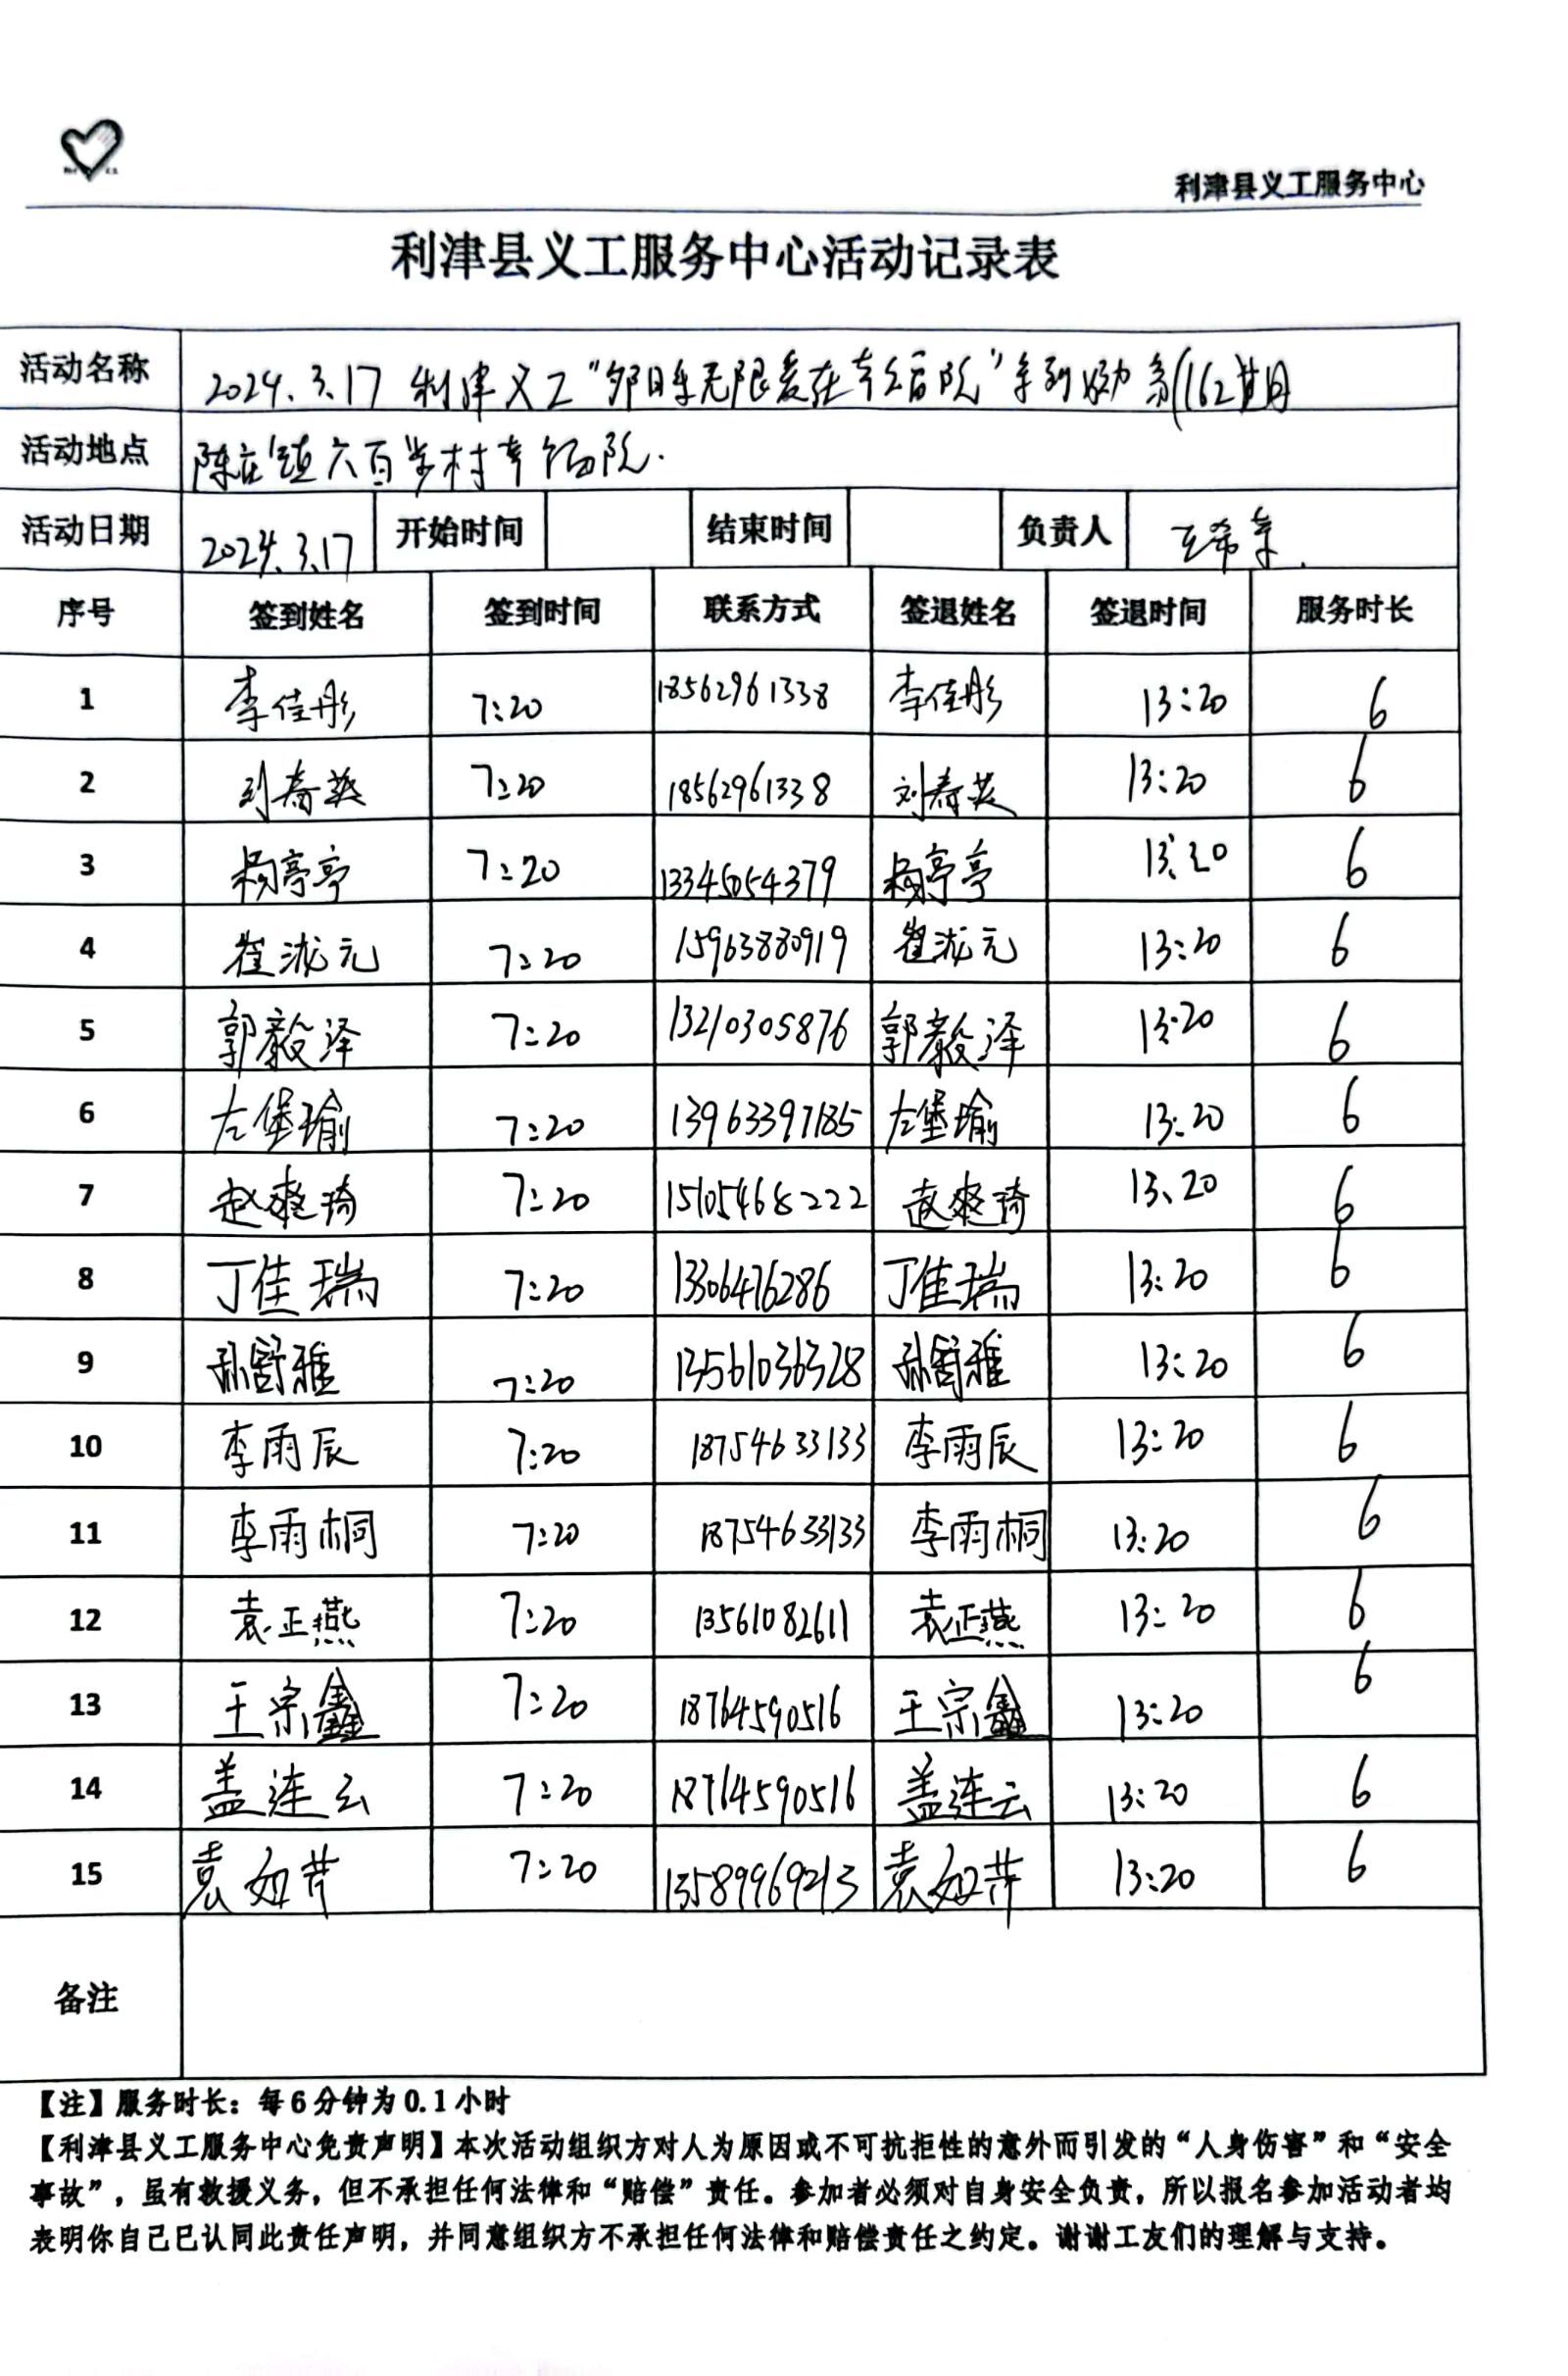 利津县义工服务中心
利津县义工服务中心活动记录表
活动名称 2024.3.17 利津义工“夕阳无限爱在幸福院”系列活动第162期
活动地点 陈庄镇六百步村幸福院.
活动日期 2024.3.17 开始时间 结束时间 负责人
序号 签到姓名 签到时间 联系方式 签退姓名 签退时间 服务时长
1 李佳彤 7:20 18562961338 李佳彤 13:20 6
2 刘春英 7:20 18562961338 刘春英 13:20 6
3 杨亭亭 7:20 13345054379 杨亭亭 13:20 6
4 崔泷元 7:20 15963880919 崔泷元 13:20 6
5 郭毅泽 7:20 13210305876 郭毅泽 13:20 6
6 左堡瑜 7:20 13963397185 左堡瑜 13:20 6
7 赵爽琦 7:20 15105468222 赵爽琦 13:20 6
8 丁佳瑞 7:20 13306476286 丁佳瑞 13:20 6
9 孙舒雅 7:20 13561036328 孙舒雅 13:20 6
10 李雨辰 7:20 18754633133 李雨辰 13:20 6
11 李雨桐 7:20 18754633133 李雨桐 13:20 6
12 袁正燕 7:20 13561082611 袁正燕 13:20 6
13 王宗鑫 7:20 18764590516 王宗鑫 13:20 6
14 盖连云 7:20 18764590516 盖连云 13:20 6
15 袁如芹 7:20 13589969213 袁如芹 13:20 6
备注
【注】服务时长：每6分钟为0.1小时
【利津县义工服务中心免责声明】本次活动组织方对人为原因或不可抗拒性的意外而引发的“人身伤害”和“安全
事故”，虽有救援义务，但不承担任何法律和“赔偿”责任。参加者必须对自身安全负责，所以报名参加活动者均
表明你自己已认同此责任声明，并同意组织方不承担任何法律和赔偿责任之约定。谢谢工友们的理解与支持。